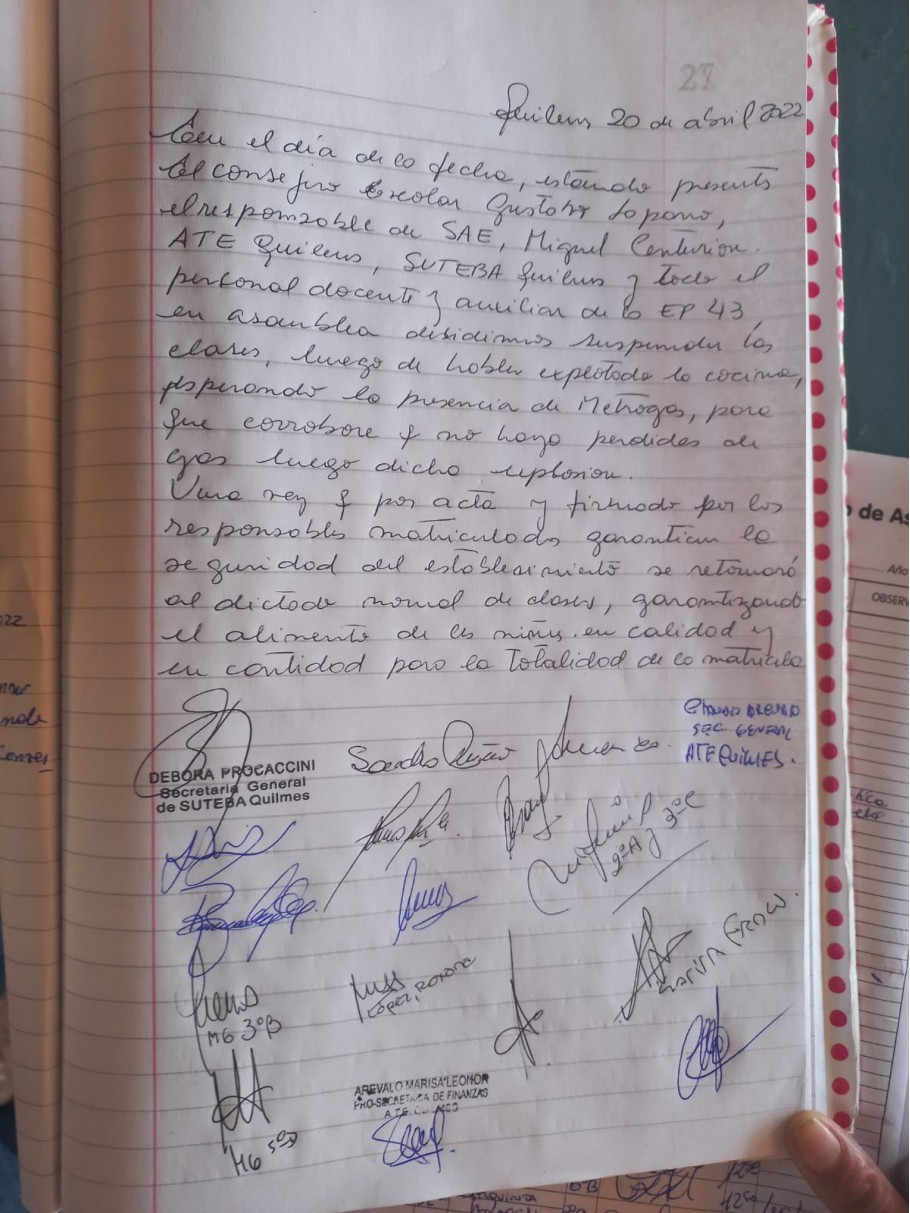 27
Quilmes 20 de abril 2022
Con el día de la fecha, estando presente
el consejero Escolar Gustabo Lopano,
el responzable de SAE, Miguel Centurion.
ATE Quilmes, SUTEBA Quilmes y todo el
personal docente y auxiliar de la EP 43,
en asamblea disidimos suspender las
clases, luego de haber explotado la cocina,
esperando la presencia de Metrogas, para
que corrobore q no haya perdidas de
gas luego dicha explosion.
Una vez q por acta y firmado por los
responsables matriculados garanticen la
seguridad del establecimiento se retornará
al dictado normal de clases, garantizando
el alimento de les niñxs en calidad y
en cantidad para la totalidad de la matricula
SEC. GENERAL
ATE QUILMES.
DEBORA PROCACCINI
Secretaria General
de SUTEBA Quilmes
2ºA y 3ºC
MG 3ºB
LOPEZ, ROXANA
MG 5ºD
AREVALO MARISA LEONOR
PRO-SECRETARIA DE FINANZAS
A.T.E. QUILMES
de As
Año
OBSERV